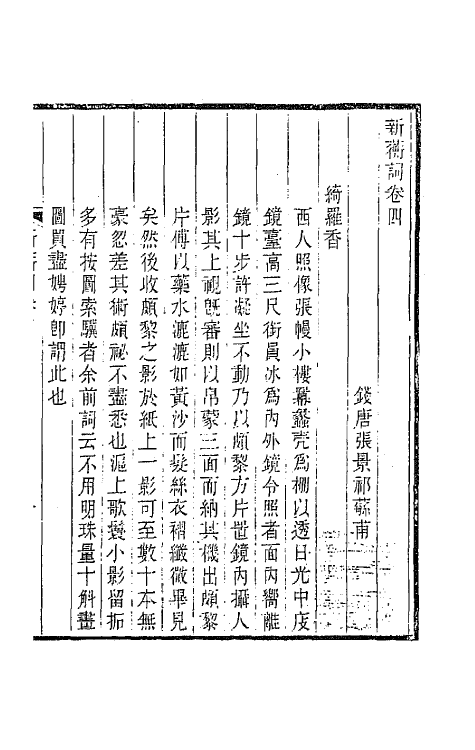 新蘅詞卷四
錢唐張景祁蘇甫
綺羅香
西人照像張幔小樓羃蠡壳爲棚以透日光中庋
鏡臺高三尺銜員冰爲內外鏡令照者面內嚮離
鏡十步許凝坐不動乃以頗黎方片置鏡內攝人
影其上視旣審則以帛蒙三面而納其機出頗黎
片傅以藥水漉漉如黃沙而髮絲衣褶纖微畢見
矣然後收頗黎之影於紙上一影可至數十本無
豪忽差其術頗祕不盡悉也滬上歌鬟小影留抓
多有按圖索驥者余前詞云不用明珠量十斛畫
圖買盡娉婷卽謂此也